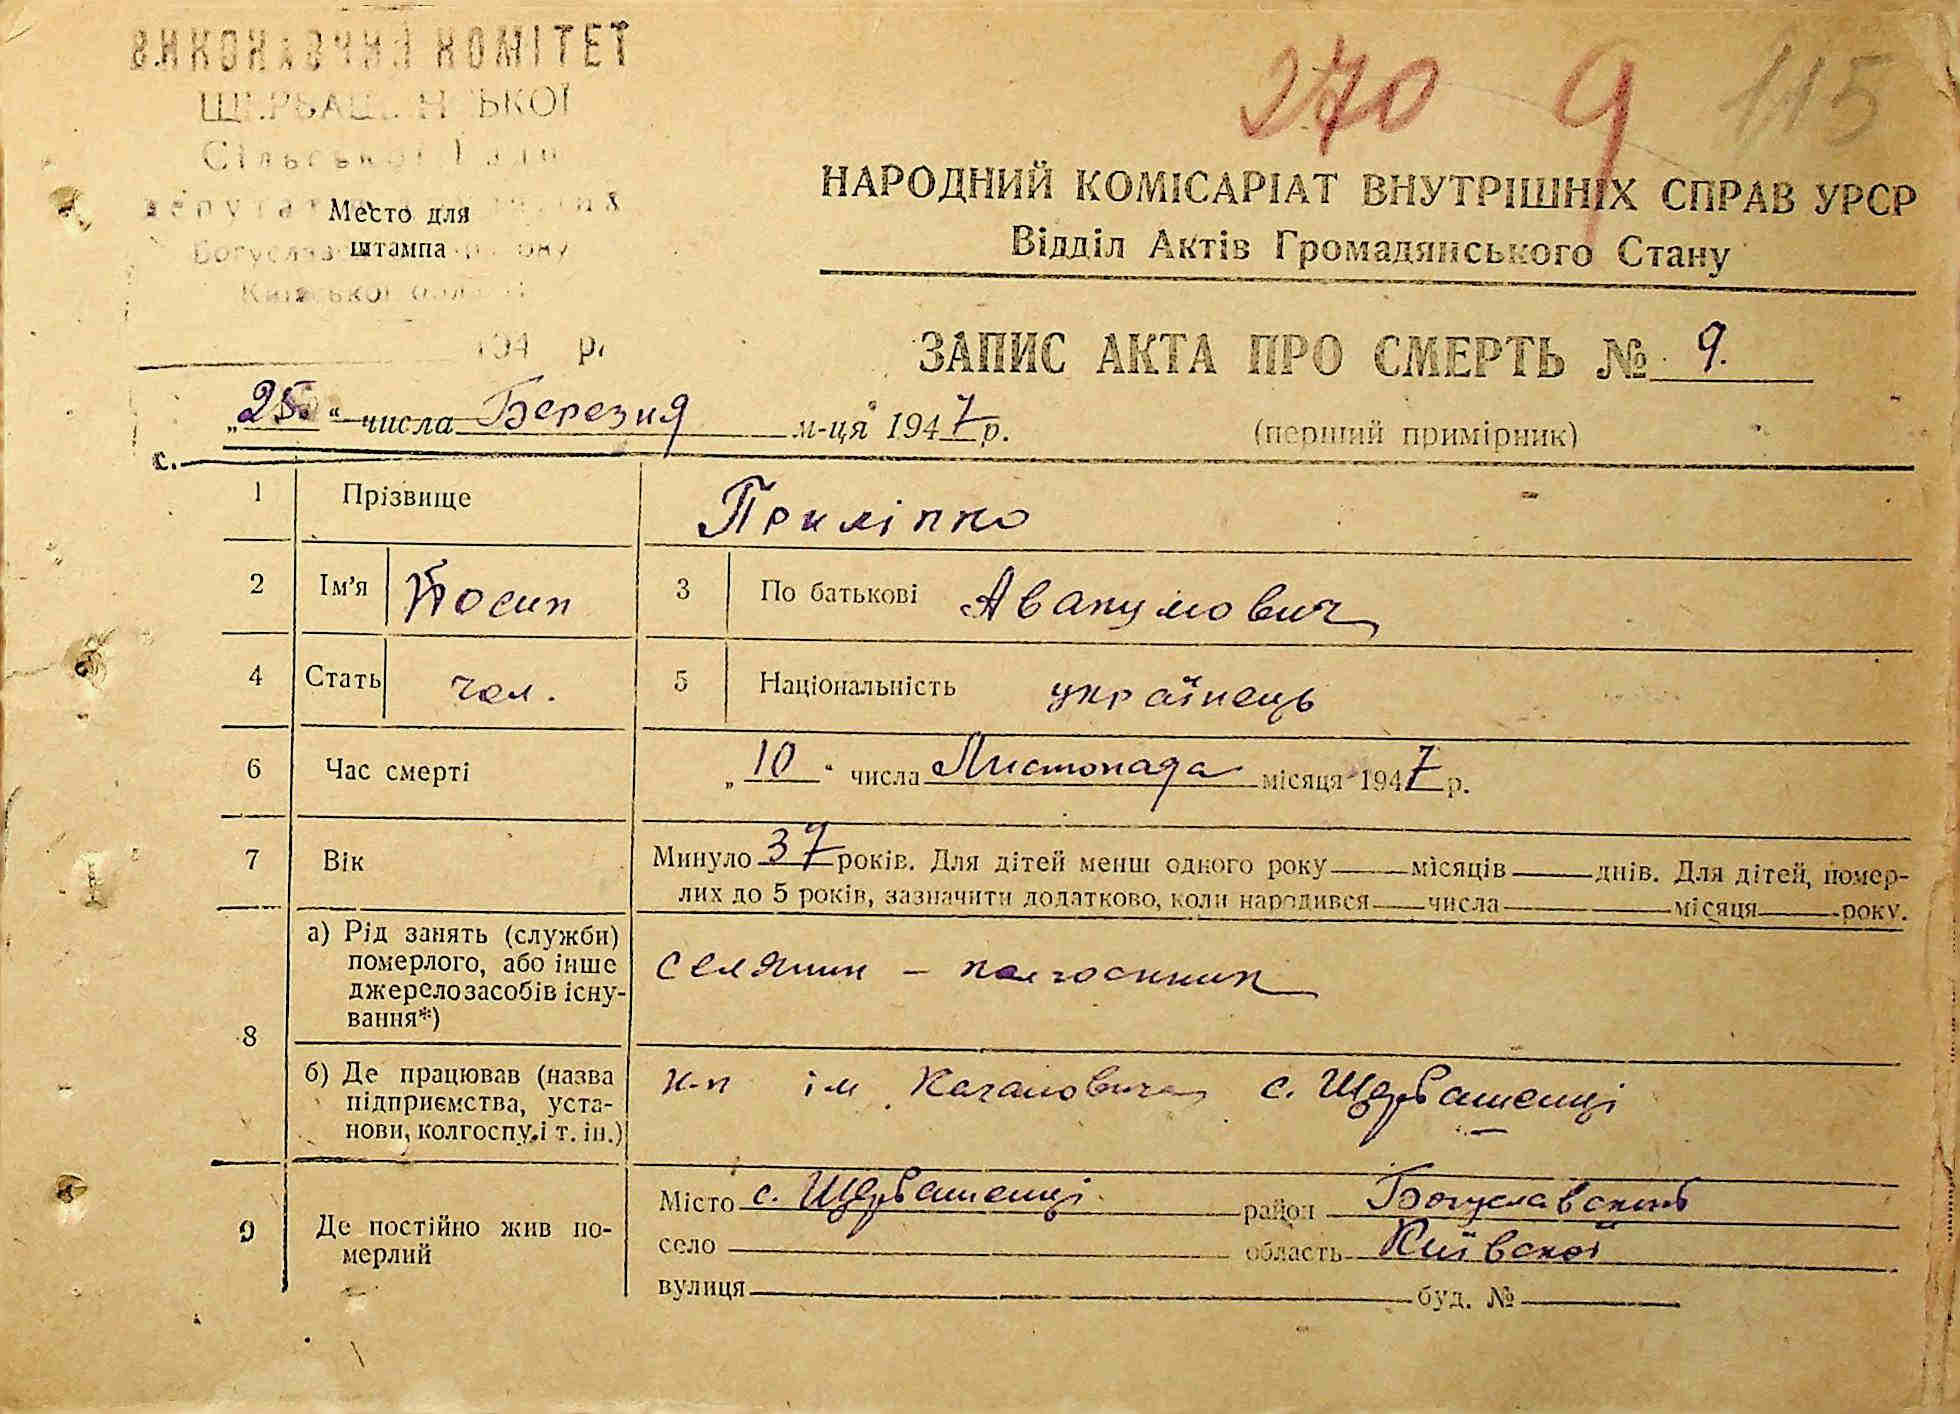 ВИКОНАВЧИЙ КОМІТЕТ
ЩЕРБАШЕНСЬКОЇ
Сільської Ради
Место для
штампа
Богуславс
Київської області
194 р.
270 9 115
НАРОДНИЙ КОМІСАРІАТ ВНУТРІШНІХ СПРАВ УРСР
Відділ Актів Громадянського Стану
ЗАПИС АКТА ПРО СМЕРТЬ № 9.
„25“ числа Березня м-ця 1947 р.
(перший примірник)
с.
1 Прізвище Приліпко
2 Ім'я Йосип 3 По батькові Авакумович
4 Стать чол. 5 Національність українець
6 Час смерті „10“ числа Листопада місяця 1947 р.
7 Вік Минуло 37 років. Для дітей менш одного року місяців днів. Для дітей, помер-
лих до 5 років, зазначити додатково, коли народився числа місяця року.
8 а) Рід занять (служби)
померлого, або інше
джерело засобів існу-
вання*)
селянин – колгосник
б) Де працював (назва
підприємства, уста-
нови, колгоспу і т. ін.)
к-п ім Кагановича с. Щербашенці
9 Де постійно жив по-
мерлий
Місто с. Щербашенці район Богуславский
село область Київскої
вулиця буд. №